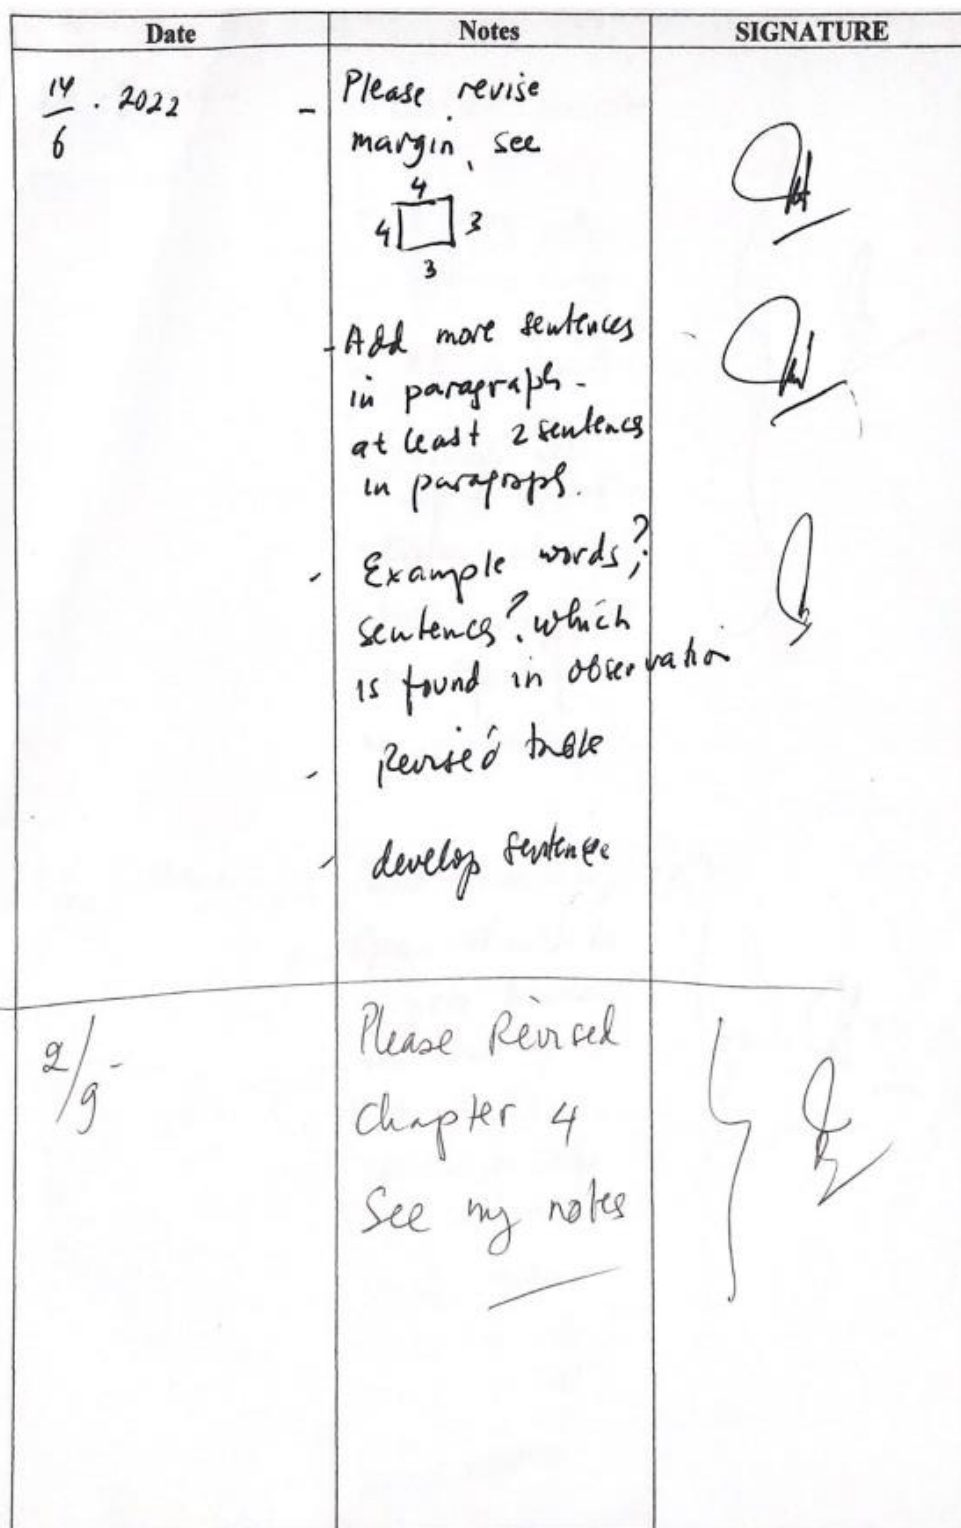 Date Notes SIGNATURE
14/6 . 2022
- Please revise
margin, see
4
4 3
3
- Add more sentences
in paragraph -
at least 2 sentences
in paragraph.
- Example words?;
sentences? which
is found in observation
- Revised table
- develop sentence
2/9 -
Please Revised
Chapter 4
See my notes